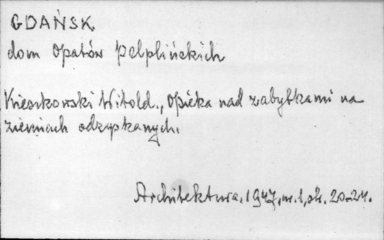 GDAŃSK
dom Opatów Pelplińskich
Kieszkowski Witold., Opieka nad zabytkami na
ziemiach odzyskanych.
Architektura, 1947, nr. 1, str. 20-24.